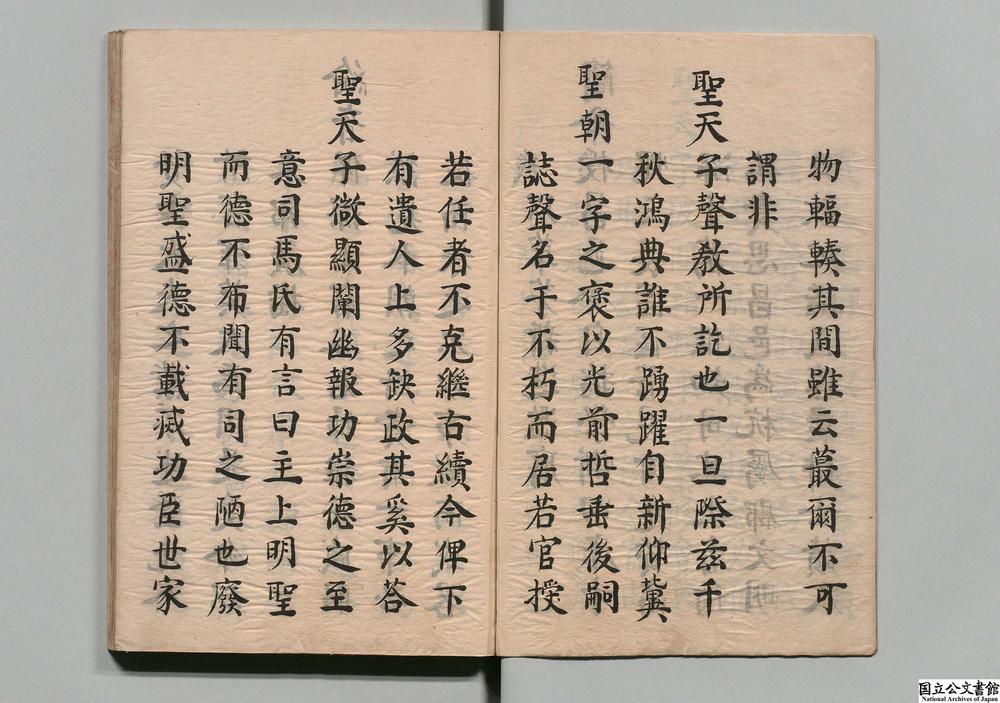 物輻輳其間雖云蕞爾不可
謂非
聖天子聲敎所訖也一旦際茲千
秋鴻典誰不踴躍自新仰冀
聖朝一字之褒以光前哲垂後嗣
誌聲名于不朽而居若官授
若任者不克繼古續今俾下
有遺人上多缺政其奚以荅
聖天子微顯闡幽報功崇德之至
意司馬氏有言曰主上明聖
而德不布聞有司之陋也廢
明聖盛德不載滅功臣世家
国立公文書館
National Archives of Japan